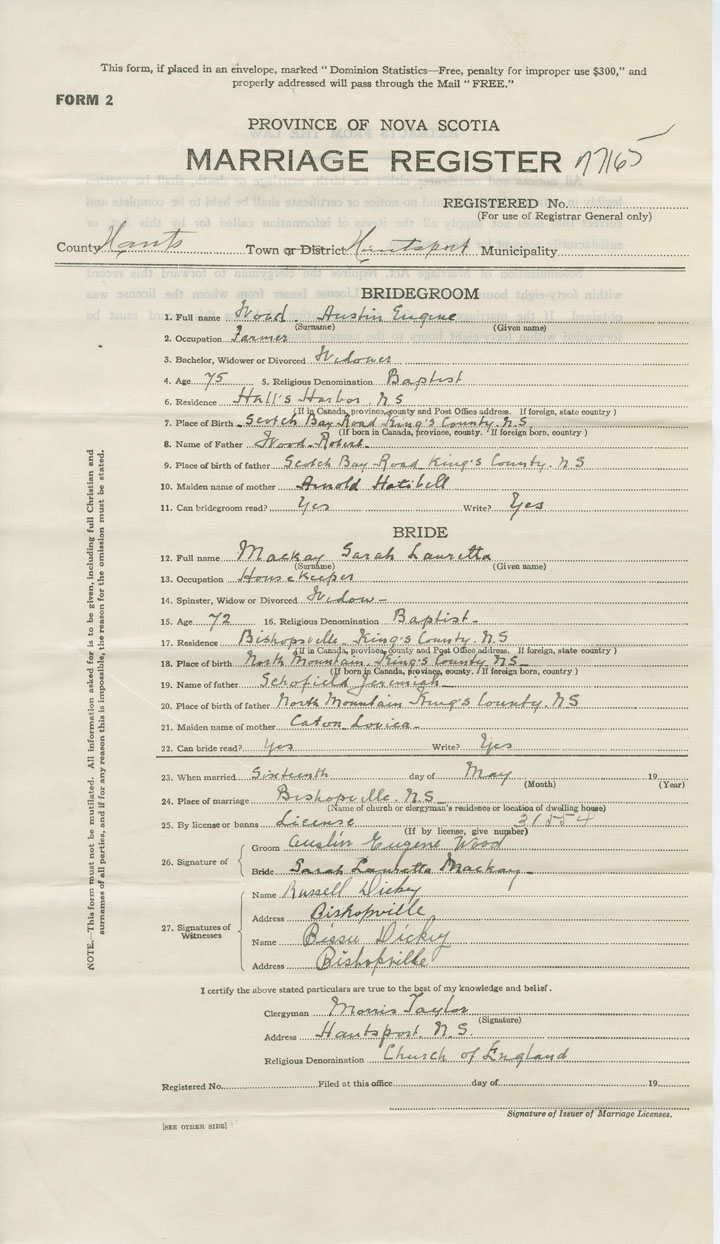 This form, if placed in an envelope, marked " Dominion Statistics—Free, penalty for improper use $300," and
properly addressed will pass through the Mail " FREE."
FORM 2
PROVINCE OF NOVA SCOTIA
MARRIAGE REGISTER 77165
REGISTERED No.
(For use of Registrar General only)
County Hants Town or District Hantsport Municipality
BRIDEGROOM
1. Full name Wood Austin Eugene
(Surname) (Given name)
2. Occupation Farmer
3. Bachelor, Widower or Divorced Widower
4. Age 75 5. Religious Denomination Baptist
6. Residence Hall's Harbor. N.S
(If in Canada, province, county and Post Office address. If foreign, state country )
7. Place of Birth Scotch Bay Road King's County. N.S
(If born in Canada, province, county. If foreign born, country )
8. Name of Father Wood Robert
9. Place of birth of father Scotch Bay Road King's County. N.S
10. Maiden name of mother Arnold
11. Can bridegroom read? Yes Write? Yes
BRIDE
12. Full name Mackay Sarah Lauretta
(Surname) (Given name)
13. Occupation Housekeeper
14. Spinster, Widow or Divorced Widow
15. Age 72 16. Religious Denomination Baptist
17. Residence Bishopsville King's County. N.S
(If in Canada, province, county and Post Office address. If foreign, state country )
18. Place of birth North Mountain. King's County N.S
(If born in Canada, province, county. If foreign born, country )
19. Name of father Schofield Jeremiah
20. Place of birth of father North Mountain King's County. N.S
21. Maiden name of mother Caton Lovica
22. Can bride read? Yes Write? Yes
23. When married Sixteenth day of May 19
(Month) (Year)
24. Place of marriage Bishopville. N.S
(Name of church or clergyman's residence or location of dwelling house)
25. By license or banns License 31554
(If by license, give number)
26. Signature of
Groom Austin Eugene Wood
Bride Sarah Lauretta Mackay
27. Signatures of Witnesses
Name Russell Dickey
Address Bishopville
Name Bessie Dickey
Address Bishopville
I certify the above stated particulars are true to the best of my knowledge and belief.
Clergyman Morris Taylor
(Signature)
Address Hantsport, N.S.
Religious Denomination Church of England
Registered No. Filed at this office day of 19
Signature of Issuer of Marriage Licenses.
[SEE OTHER SIDE]
NOTE.—This form must not be mutilated. All information asked for is to be given, including full Christian and
surnames of all parties, and if for any reason this is impossible, the reason for the omission must be stated.